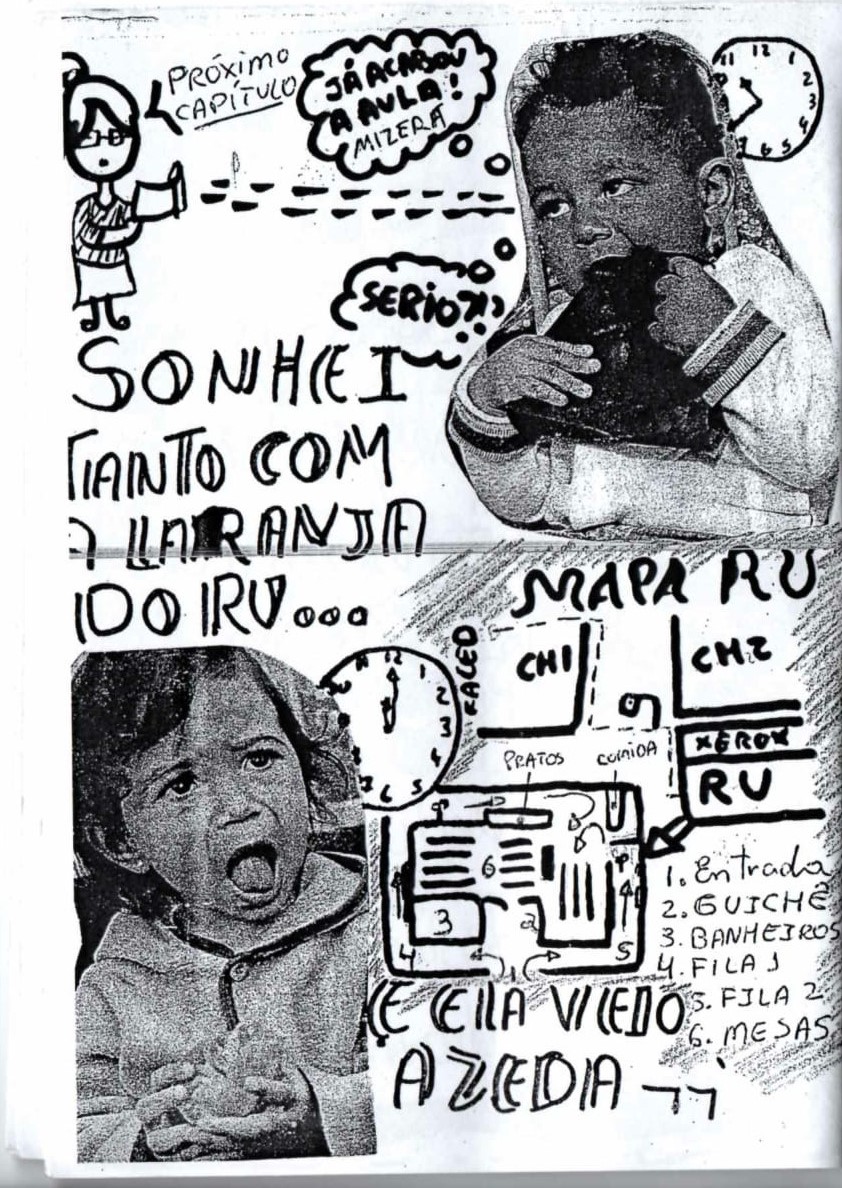 PRÓXIMO
CAPÍTULO
JÁ ACABOU
A AULA!
MIZERA
11 12 1
2
3
4
5
6
7
SERIO?!?
SONHEI
TANTO COM
A LARANJA
DO RU...
MAPA RU
FACED
CH1
CH2
XEROX
RU
PRATOS
COMIDA
12
1
2
3
4
5
6
7
6
3
2
4
1
5
1. Entrada
2. GUICHÊ
3. BANHEIROS
4. FILA 1
5. FILA 2
6. MESAS
E ELA VEIO
AZEDA ¬¬'